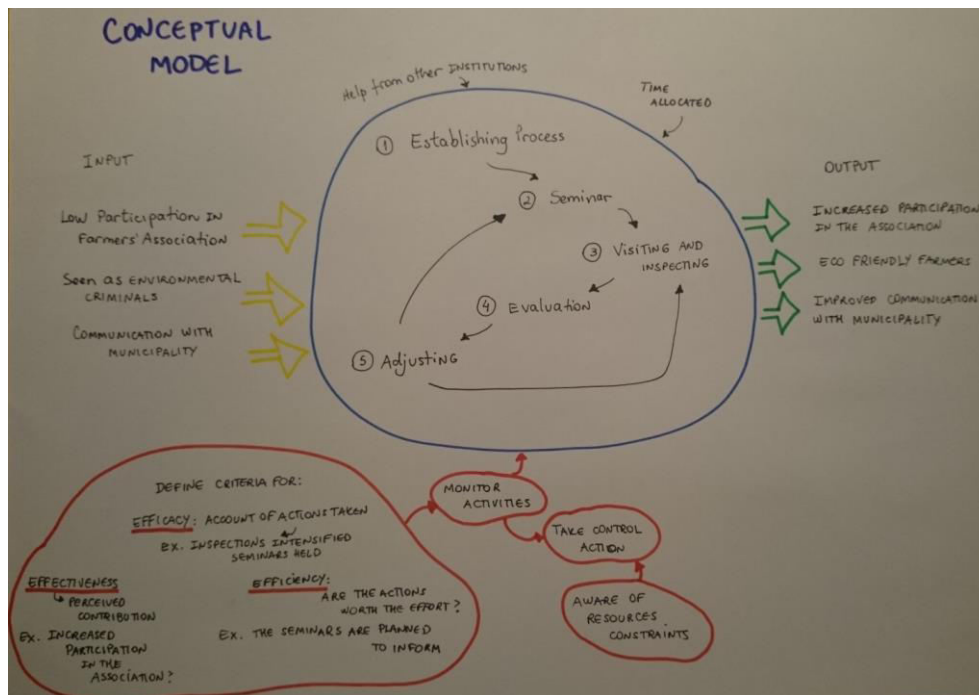 CONCEPTUAL
MODEL
Help from other INSTITUTIONS
TIME
ALLOCATED
INPUT
Low Participation IN
Farmers' Association
Seen as ENVIRONMENTAL
CRIMINALS
COMMUNICATION WITH
MUNICIPALITY
① Establishing Process
② Seminar
③ VISITING AND
INSPECTING
④ Evaluation
⑤ ADJUSTING
OUTPUT
INCREASED PARTICIPATION
IN THE ASSOCIATION
ECO FRIENDLY FARMERS
IMPROVED COMMUNICATION
WITH MUNICIPALITY
DEFINE CRITERIA FOR:
EFFICACY: ACCOUNT OF ACTIONS TAKEN
EX. INSPECTIONS INTENSIFIED
SEMINARS HELD
EFFECTIVENESS
PERCEIVED
CONTRIBUTION
EX. INCREASED
PARTICIPATION
IN THE
ASSOCIATION?
EFFICIENCY:
ARE THE ACTIONS
WORTH THE EFFORT?
EX. THE SEMINARS ARE PLANNED
TO INFORM
MONITOR
ACTIVITIES
TAKE CONTROL
ACTION
AWARE OF
RESOURCES
CONSTRAINTS